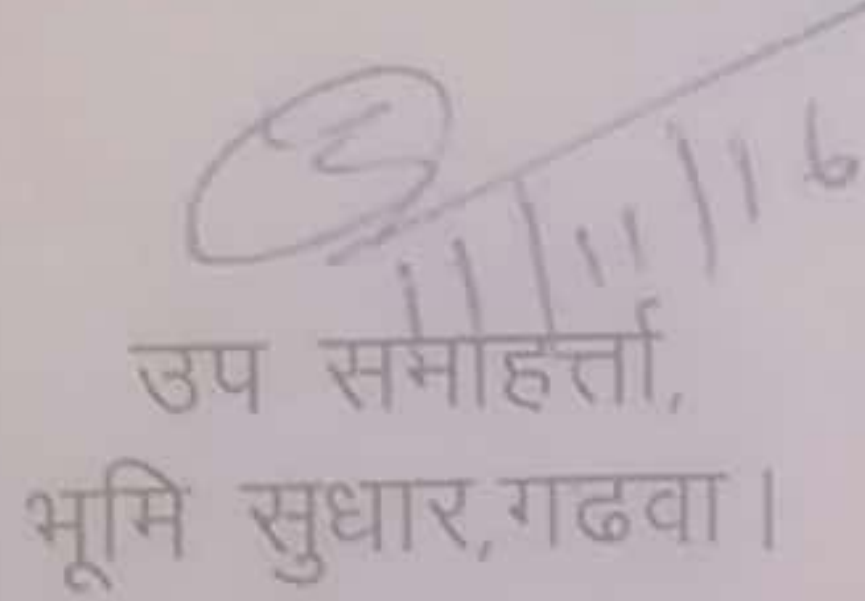 11/11/16
उप समाहर्त्ता,
भूमि सुधार,गढवा।